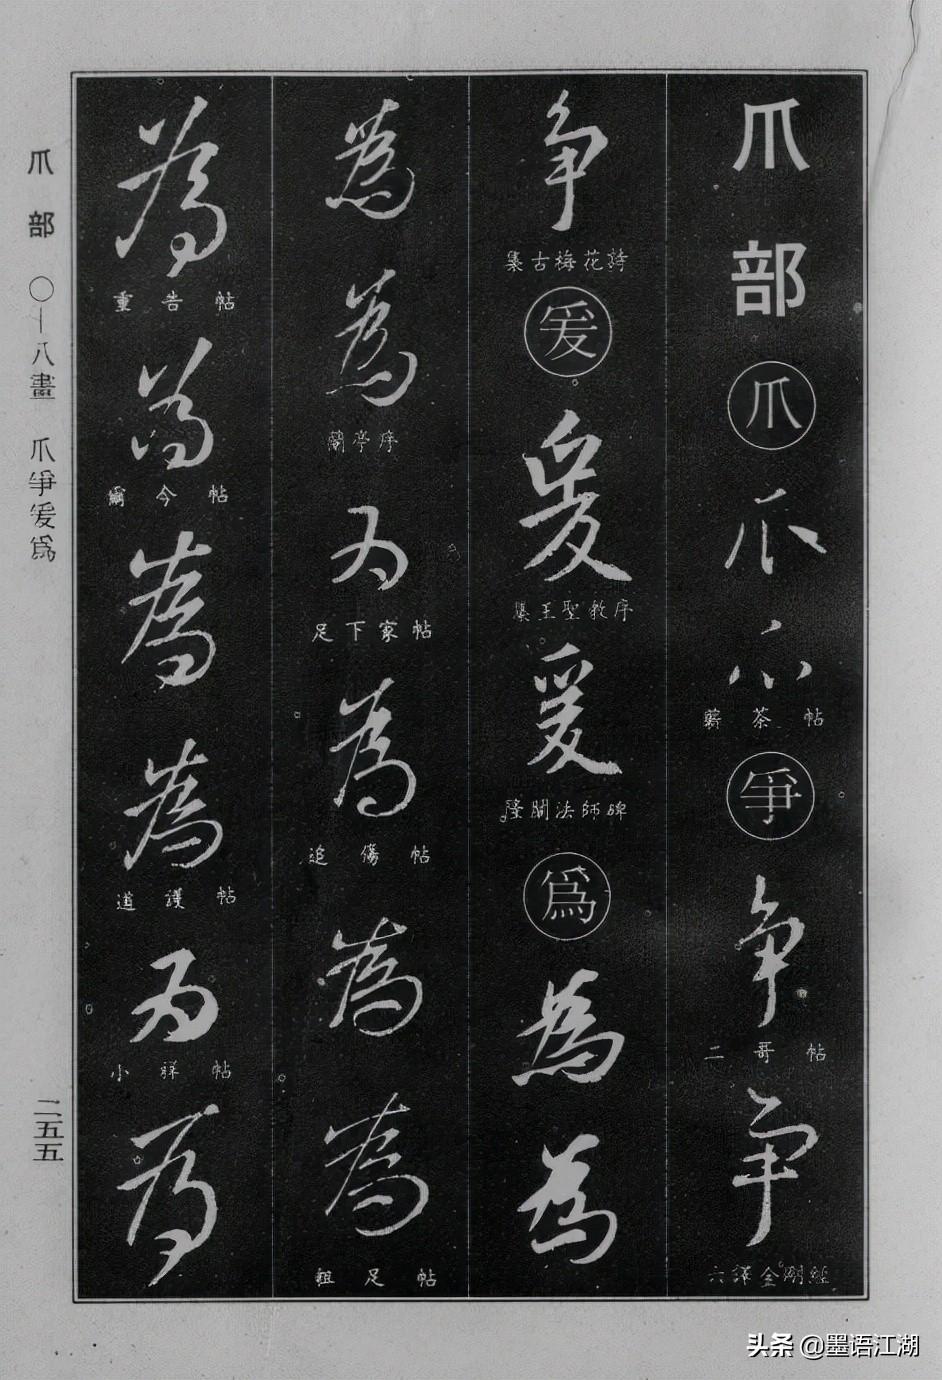 爪部
爪
爪
爪
茶帖
爭
爭
二哥帖
爭
六譯金剛經
爭
集古梅花詩
爰
爰
集王聖教序
爰
隆闡法師碑
爲
爲
爲
爲
爲
蘭亭序
爲
足下家帖
爲
追傷帖
爲
爲
粗足帖
爲
重告帖
爲
今帖
爲
爲
道護帖
爲
小祥帖
爲
爪部 〇—八畫 爪爭爰爲
二五五
头条 @墨语江湖